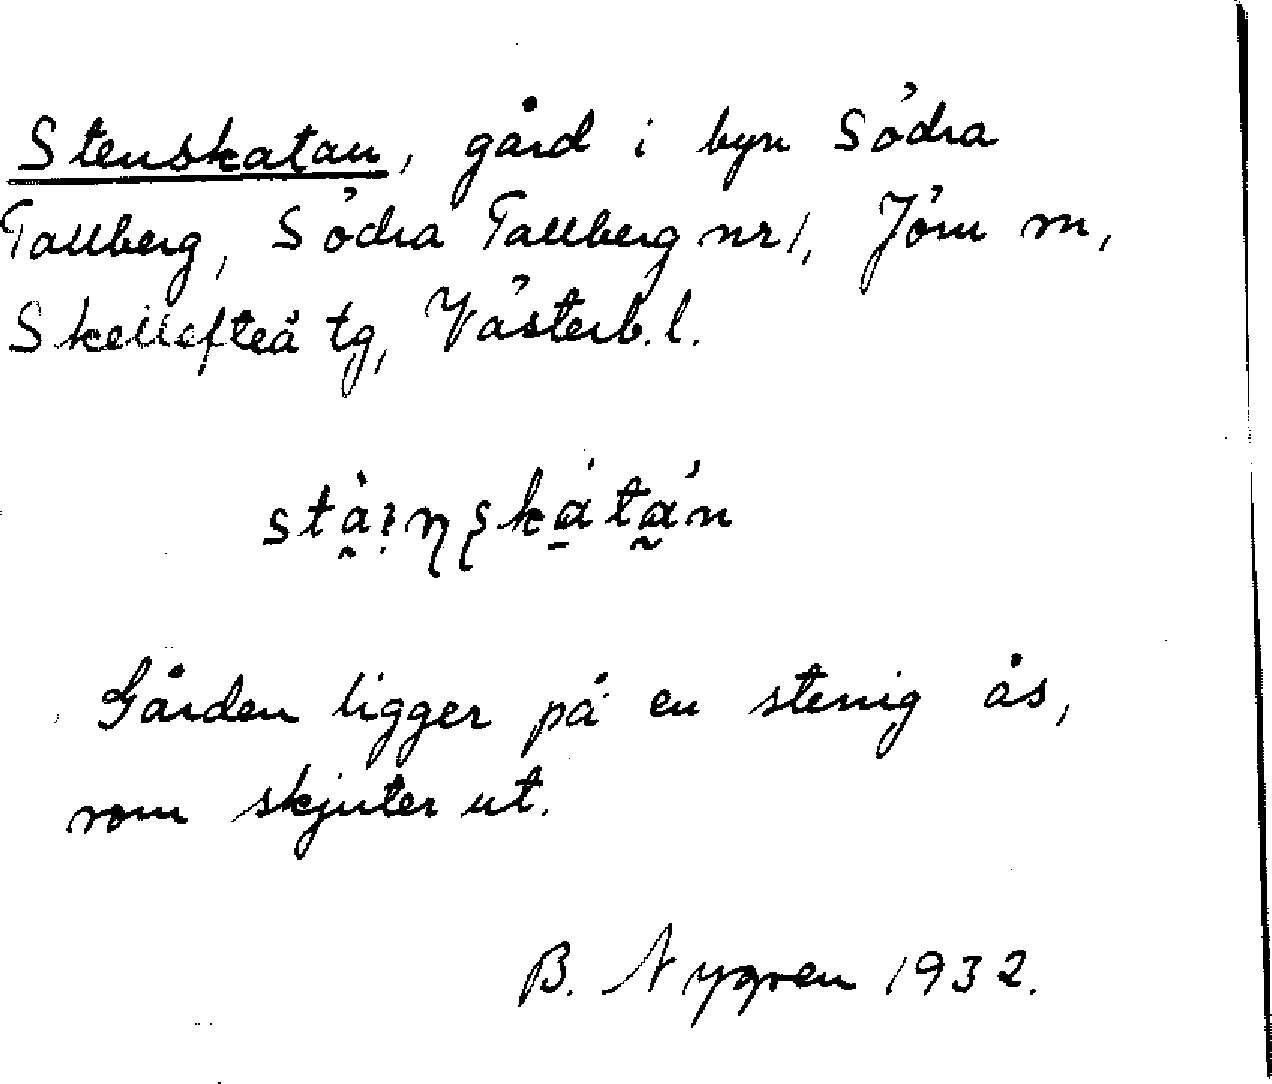 Stenskatan, gård i byn Södra
Tallberg, Södra Tallberg nr 1, Jörn m,
Skellefteå tg, Västerb. l.
Gården ligger på en stenig ås,
som skjuter ut.
B. Nygren 1932.